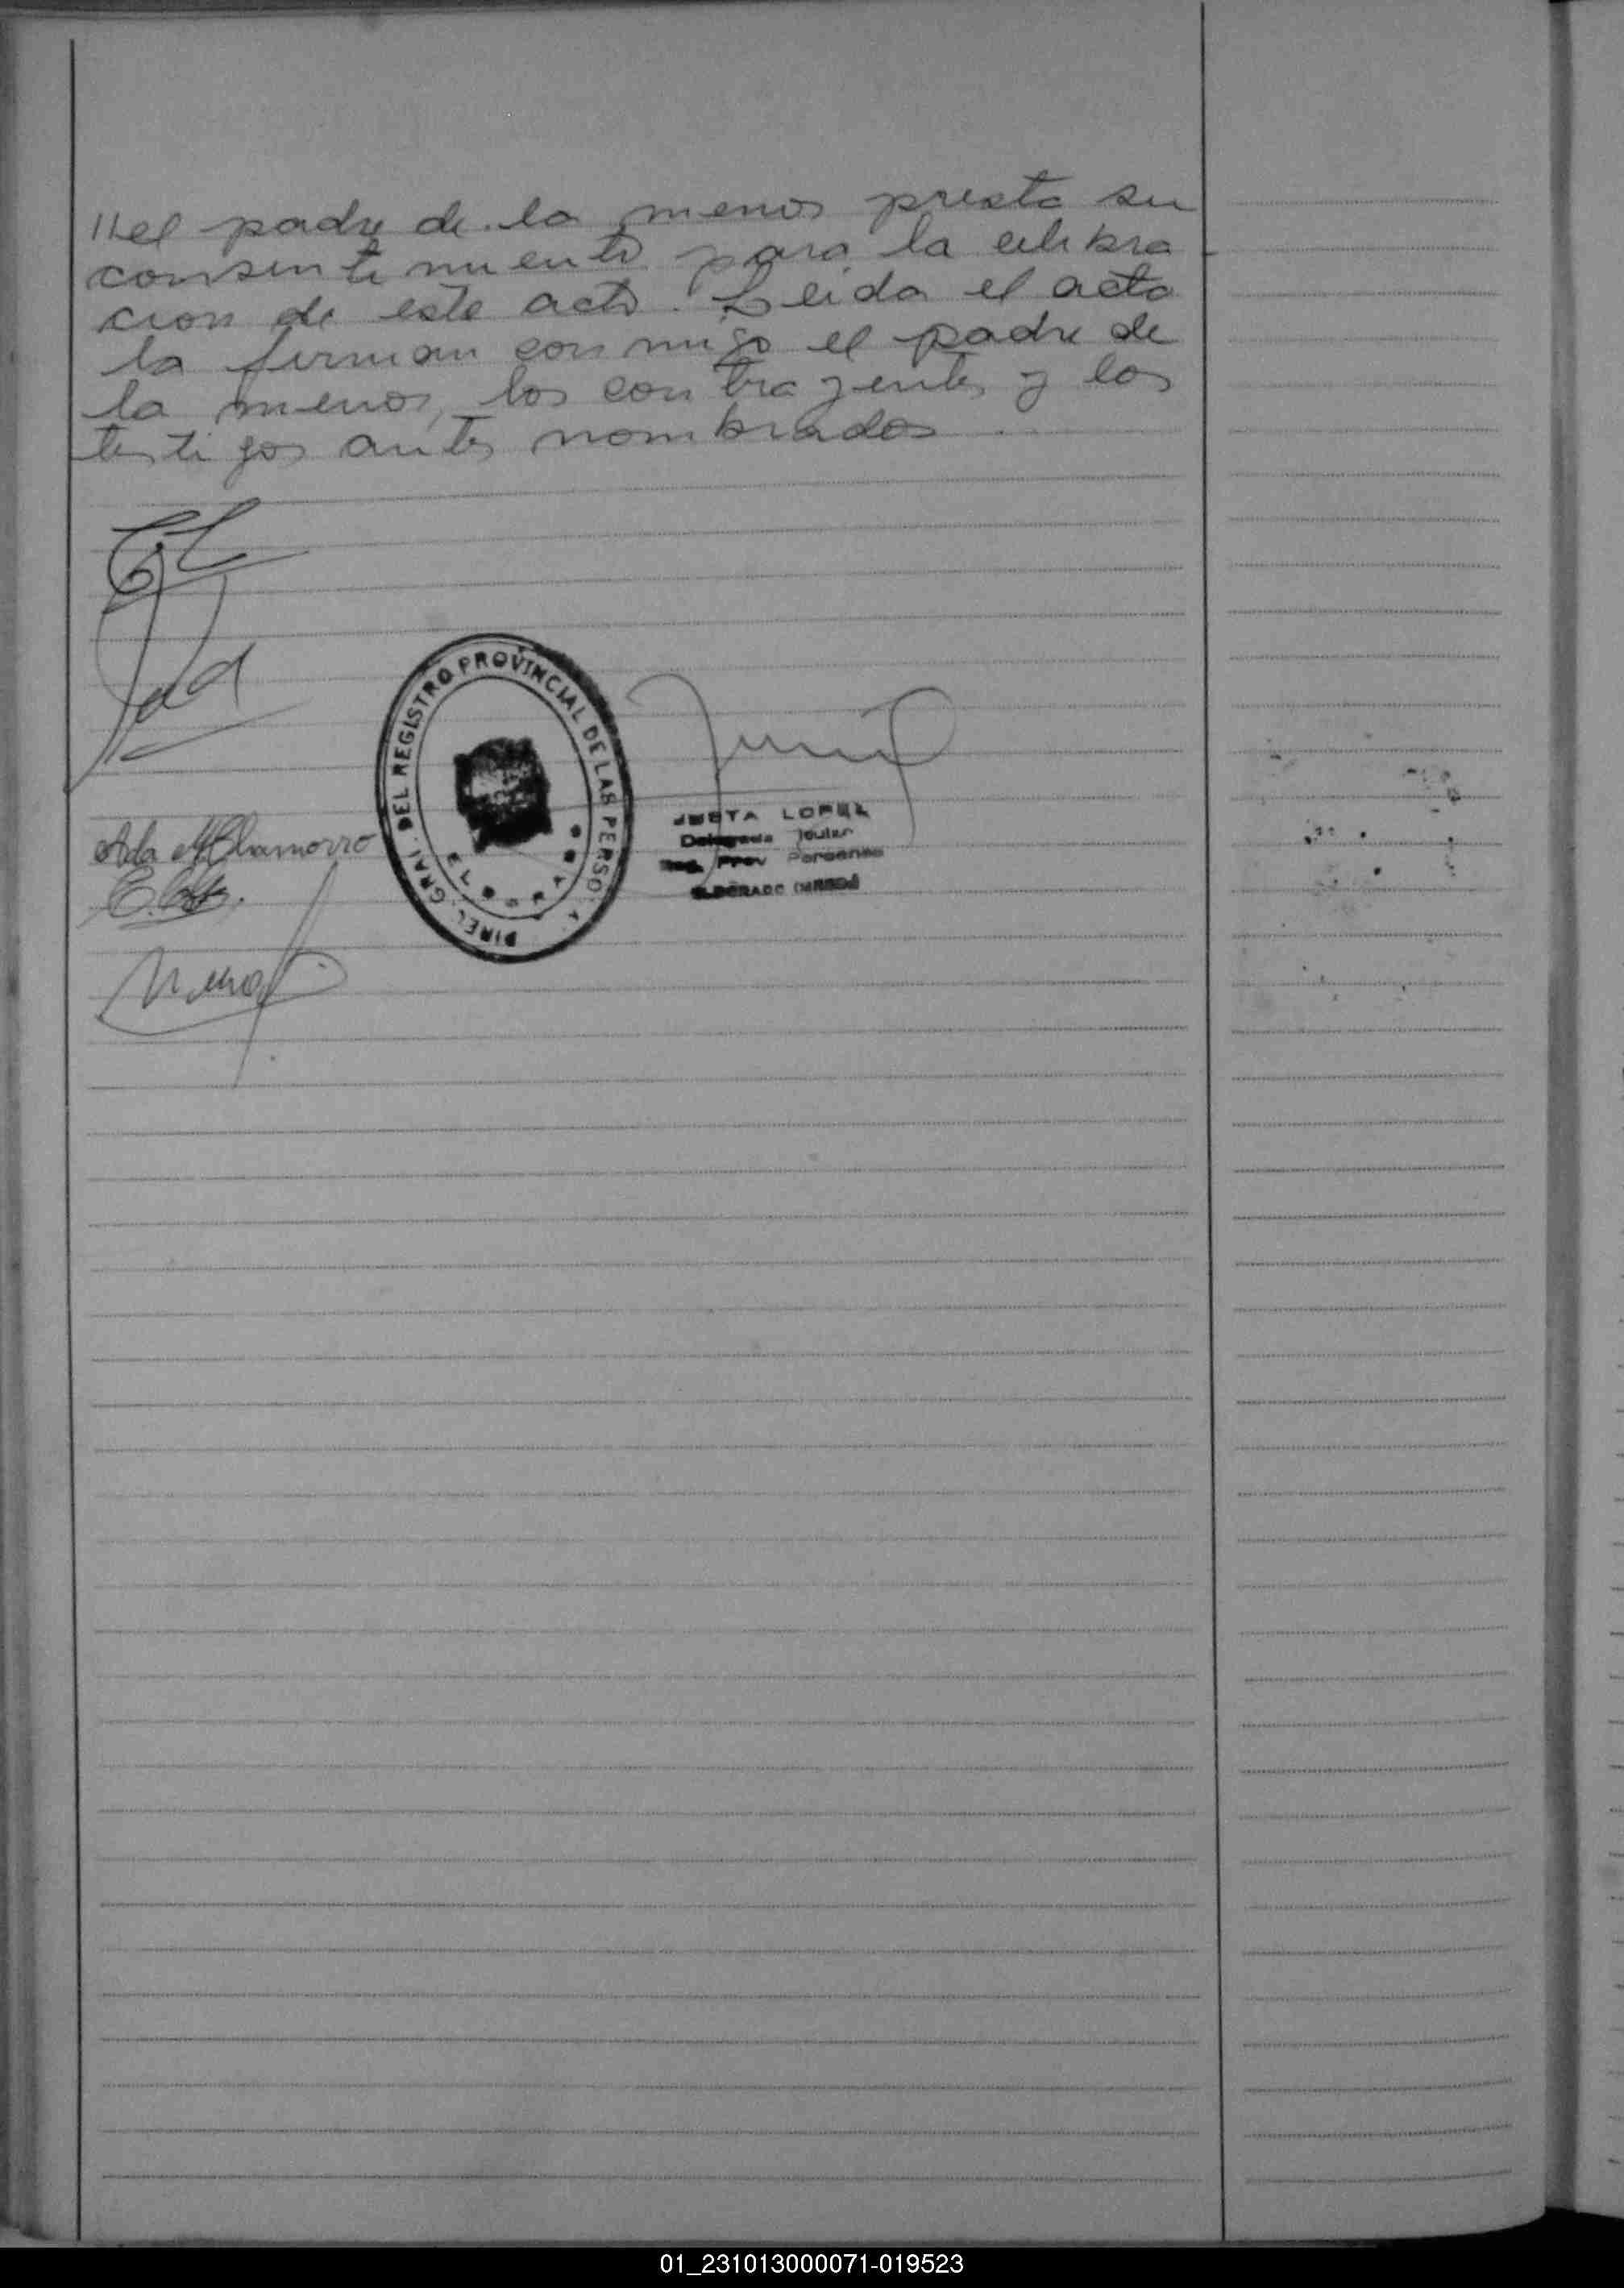 //el padre de la menor presta su
consentimiento para la celebra
cion de este acto. Leida el acta
la firman conmigo el padre de
la menor, los contrayentes y los
testigos antes nombrados
DIREC. GRAL. DEL REGISTRO PROVINCIAL DE LAS PERSO
JUSTA LOPEZ
Delegada Titular
Reg. Prov Personas
ELDORADO
Ada M Chamorro
01_231013000071-019523